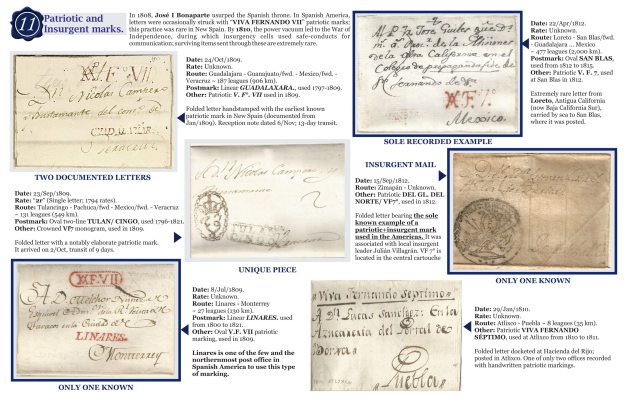 11
Patriotic and
Insurgent marks.
In 1808, José I Bonaparte usurped the Spanish throne. In Spanish America,
letters were occasionally struck with "VIVA FERNANDO VII" patriotic marks;
this practice was rare in New Spain. By 1810, the power vacuum led to the War of
Independence, during which insurgency cells used safe-conducts for
communication; surviving items sent through these are extremely rare.
Date: 24/Oct/1809.
Rate: Unknown.
Route: Guadalajara - Guanajuato/fwd. - Mexico/fwd. -
Veracruz ~ 187 leagues (906 km).
Postmark: Linear GUADALAXARA., used 1797-1809.
Other: Patriotic V. Fº. VII used in 1809.
Folded letter handstamped with the earliest known
patriotic mark in New Spain (documented from
Jan/1809). Reception note dated 6/Nov; 13-day transit.
TWO DOCUMENTED LETTERS
Date: 22/Apr/1812.
Rate: Unknown.
Route: Loreto - San Blas/fwd.
- Guadalajara ... Mexico
~ 477 leagues (2,000 km).
Postmark: Oval SAN BLAS,
used from 1812 to 1823.
Other: Patriotic V. F. 7, used
at San Blas in 1812.
Extremely rare letter from
Loreto, Antigua California
(now Baja California Sur),
carried by sea to San Blas,
where it was posted.
Mexico.
SOLE RECORDED EXAMPLE
Date: 23/Sep/1809.
Rate: "2r" (Single letter; 1794 rates).
Route: Tulancingo - Pachuca/fwd - Mexico/fwd. - Veracruz
~ 131 leagues (549 km).
Postmark: Oval two-line TULAN/ CINGO, used 1796-1821.
Other: Crowned VF7 monogram, used in 1809.
Folded letter with a notably elaborate patriotic mark.
It arrived on 2/Oct, transit of 9 days.
UNIQUE PIECE
INSURGENT MAIL
Date: 15/Sep/1812.
Route: Zimapán - Unknown.
Other: Patriotic DEL GL. DEL
NORTE/ VF7º, used in 1812.
Folded letter bearing the sole
known example of a
patriotic+insurgent mark
used in the Americas. It was
associated with local insurgent
leader Julián Villagrán. VF 7º is
located in the central cartouche
ONLY ONE KNOWN
F. VII
LINARES.
Monterrey
ONLY ONE KNOWN
Date: 8/Jul/1809.
Rate: Unknown.
Route: Linares - Monterrey
~ 27 leagues (130 km).
Postmark: Linear LINARES. used
from 1800 to 1821.
Other: Oval V.F. VII patriotic
marking, used in 1809.
Linares is one of the few and the
northernmost post office in
Spanish America to use this type
of marking.
Viva Fernando Septimo
Puebla
Date: 29/Jan/1810.
Rate: Unknown.
Route: Atlixco - Puebla ~ 8 leagues (35 km).
Other: Patriotic VIVA FERNANDO
SÉPTIMO, used at Atlixco from 1810 to 1811.
Folded letter docketed at Hacienda del Rijo;
posted in Atlixco. One of only two offices recorded
with handwritten patriotic markings.